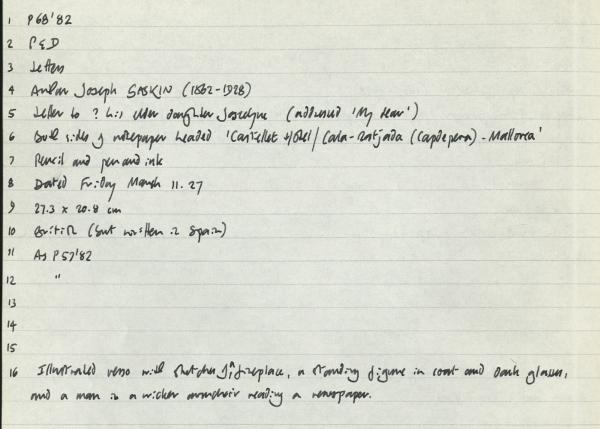 1 P68'82
2 P & D
3 Letters
4 Arthur Joseph GASKIN (1862-1928)
5 Letter to ? his elder daughter Joscelyne (addressed 'My dear')
6 Both sides of notepaper headed 'Castellet Hotel / Cala-Ratjada (Capdepera) - Mallorca'
7 Pencil and pen and ink
8 Dated Friday March 11.27
9 27.3 x 20.8 cm
10 British (but written in Spain)
11 As P57'82
12 "
13
14
15
16 Illustrated verso with sketches of a fireplace, a standing figure in coat and dark glasses,
and a man in a wicker armchair reading a newspaper.